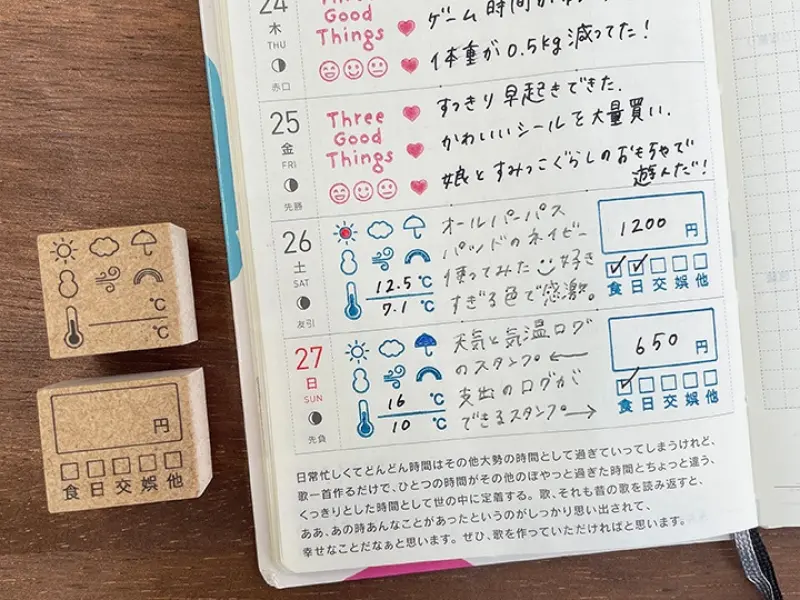 24
木
THU
赤口
Three
Good
Things
ゲーム時間が
体重が0.5kg減ってた!
25
金
FRI
先勝
Three
Good
Things
すっきり早起きできた.
かわいいシールを大量買い.
娘とすみっこぐらしのおもちゃで
遊んだ!
26
土
SAT
友引
12.5℃
7.1℃
オールパーパス
パッドのネイビー
使ってみた 好き
すぎる色で感激。
1200円
食 日 交 娯 他
27
日
SUN
先負
16℃
10℃
天気と気温ログ
のスタンプ←
支出のログが
できるスタンプ→
650円
食 日 交 娯 他
日常忙しくてどんどん時間はその他大勢の時間として過ぎていってしまうけれど、
歌一首作るだけで、ひとつの時間がその他のぼやっと過ぎた時間とちょっと違う、
くっきりとした時間として世の中に定着する。歌、それも昔の歌を読み返すと、
ああ、あの時あんなことがあったというのがしっかり思い出されて、
幸せなことだなぁと思います。ぜひ、歌を作っていただければと思います。
℃
℃
円
食 日 交 娯 他